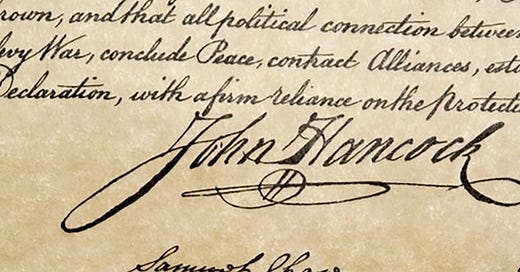 rown, and that all political connection between
levy War, conclude Peace, contract Alliances, esta
Declaration, with a firm reliance on the Protecti
John Hancock
Samuel Chase